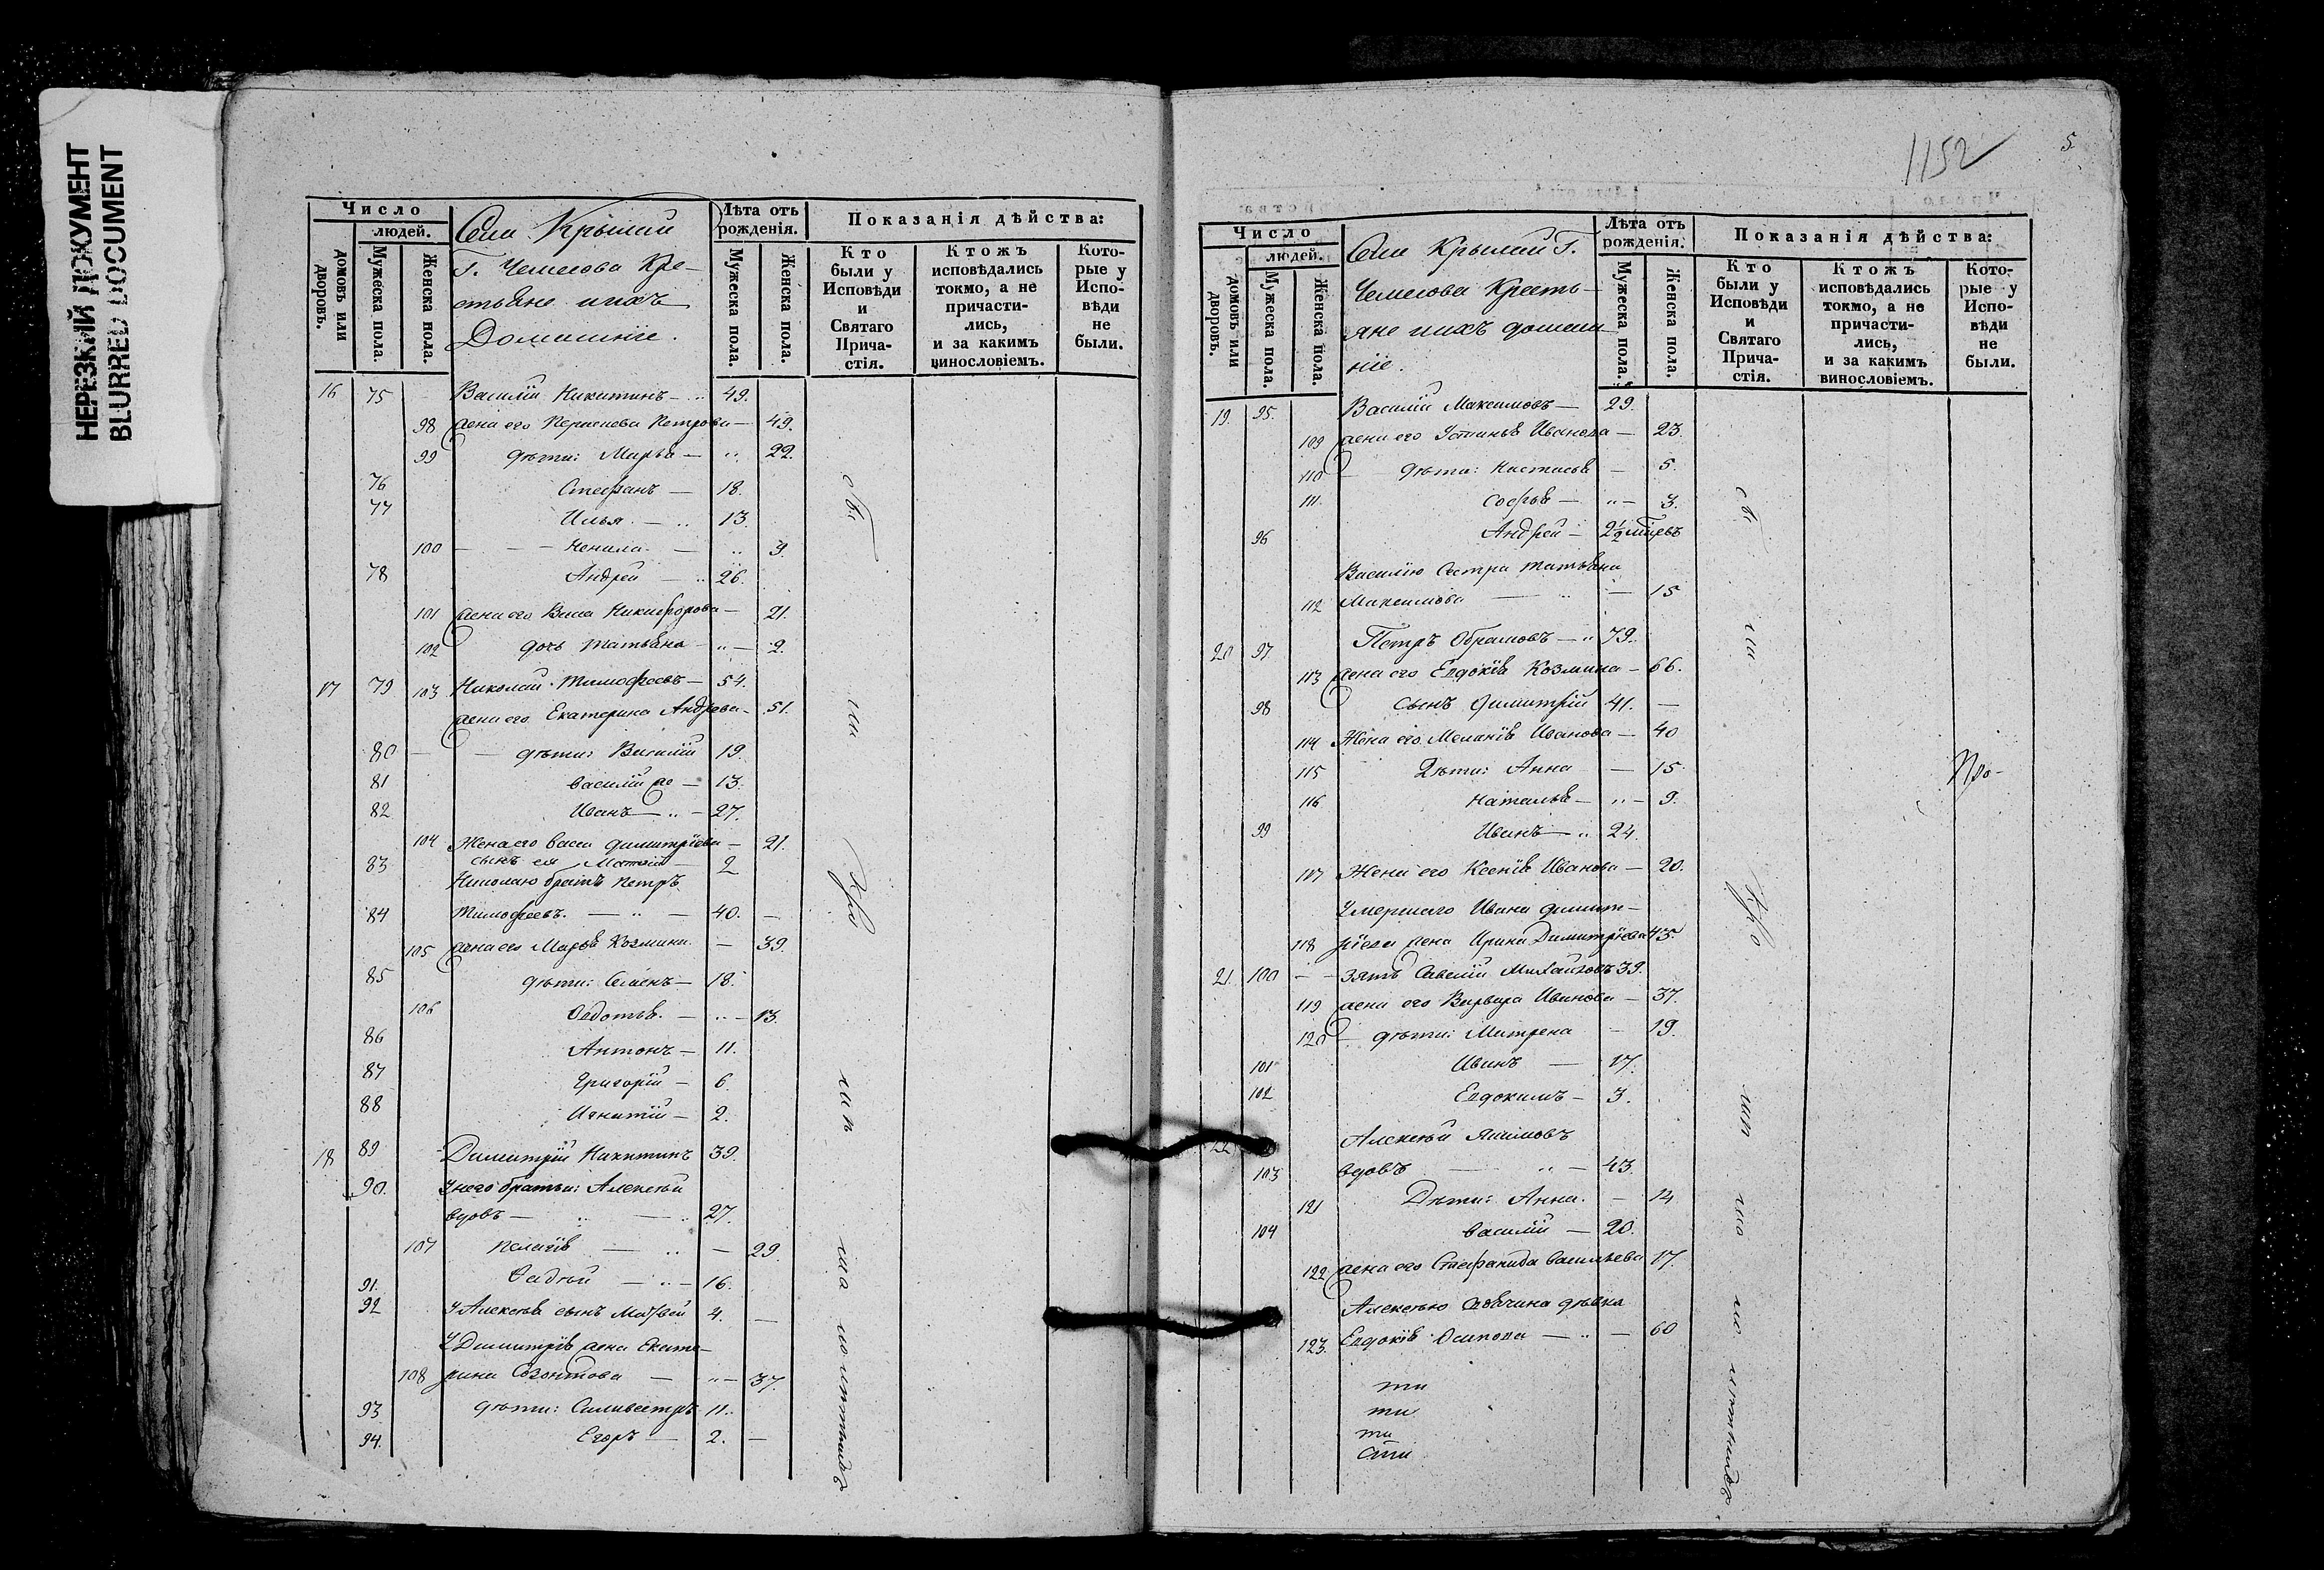 НЕРЕЗКИЙ ДОКУМЕНТ
BLURRED DOCUMENT
Число
людей.
домовъ или дворовъ.
Мужеска пола.
Женска пола.
Села Крымки
Г. Чемесова Кре-
стьяне и ихъ
Домашніе.
Лѣта отъ рожденія.
Мужеска пола.
Женска пола.
Показанія дѣйства:
Кто были у Исповѣди и Святаго Прича- стія.
Ктожъ исповѣдались токмо, а не причасти- лись, и за какимъ винословіемъ.
Кото- рые у Испо- вѣди не были.
16 75 Василій Никитинъ — 49.
98 жена его Петрова — 49.
99 дѣти: Марья — 22.
76 Стефанъ — 18.
77 Илья — 13.
100 Ненила — 9.
78 Андрей — 26.
101 жена его Васса Никифорова — 21.
102 дочь Татьяна — 2.
17 79 103 Николай Тимофеевъ — 54.
жена его Екатерина Андреева — 51.
80 дѣти: Василій 19.
81 Василій же — 13.
82 Иванъ — 27.
104 Жена его Васса Димитріева — 21.
83 сынъ ея 2
Николаю братъ Петръ
84 Тимофеевъ. — 40. —
105 жена его Марья Козмина — 39.
85 дѣти: Семенъ — 18.
106 Федотья. — 13.
86 Антонъ — 11.
87 Григорій — 6.
88 Игнатій — 2.
18 89 Димитрій Никитинъ 39.
90. У него братьи: Алексѣй
вдовъ — 27.
107 Пелагія — 29.
91. Фадѣй — 16.
92 У Алексѣя сынъ Матвѣй 4. —
У Димитрія жена Екате-
108 рина Созонтова — 37.
93 дѣти: Силивестръ 11.
94. Егоръ — 2. —
1152
5
Число
людей.
домовъ или дворовъ.
Мужеска пола.
Женска пола.
Села Крымки Г.
Чемесова Кресть-
яне и ихъ домаш-
ніе.
Лѣта отъ рожденія.
Мужеска пола.
Женска пола.
Показанія дѣйства:
Кто были у Исповѣди и Святаго Прича- стія.
Ктожъ исповѣдались токмо, а не причасти- лись, и за какимъ винословіемъ.
Кото- рые у Испо- вѣди не были.
19. 95. Василій Максимовъ — 29.
109 жена его Устинья Иванова — 23.
110 дѣти: Настасья — 5.
111. Софья — 3.
96 Андрей — 2½
Василію Сестра Татьяна
112 Максимова — 15
20 97 Петръ Обрамовъ — 79.
113 жена его Евдокія Козмина — 66.
98 Сынъ Димитрій 41. —
114 Жена его Меланія Иванова — 40
115 Дѣти: Анна — 15.
116 Наталья — 9.
99 Иванъ — 24.
117 Жена его Ксенія Иванова — 20.
Умершаго Ивана Димит-
118 ріева жена Ирина Димитріева 43.
21. 100 — зять Савелій Михайловъ 39.
119 жена его Варвара Иванова — 37.
120 дѣти: Матрена — 19.
101 Иванъ — 17.
102 Евдокимъ — 3.
22 Алексѣй Якимовъ
103 вдовъ — 43.
121 Дѣти: Анна. — 14
104 Василій — 20.
122 жена его Стефанида Васильева 17.
Алексѣю дѣвка
123. Евдокія Осипова — 60
Про-
ти
ти
ти